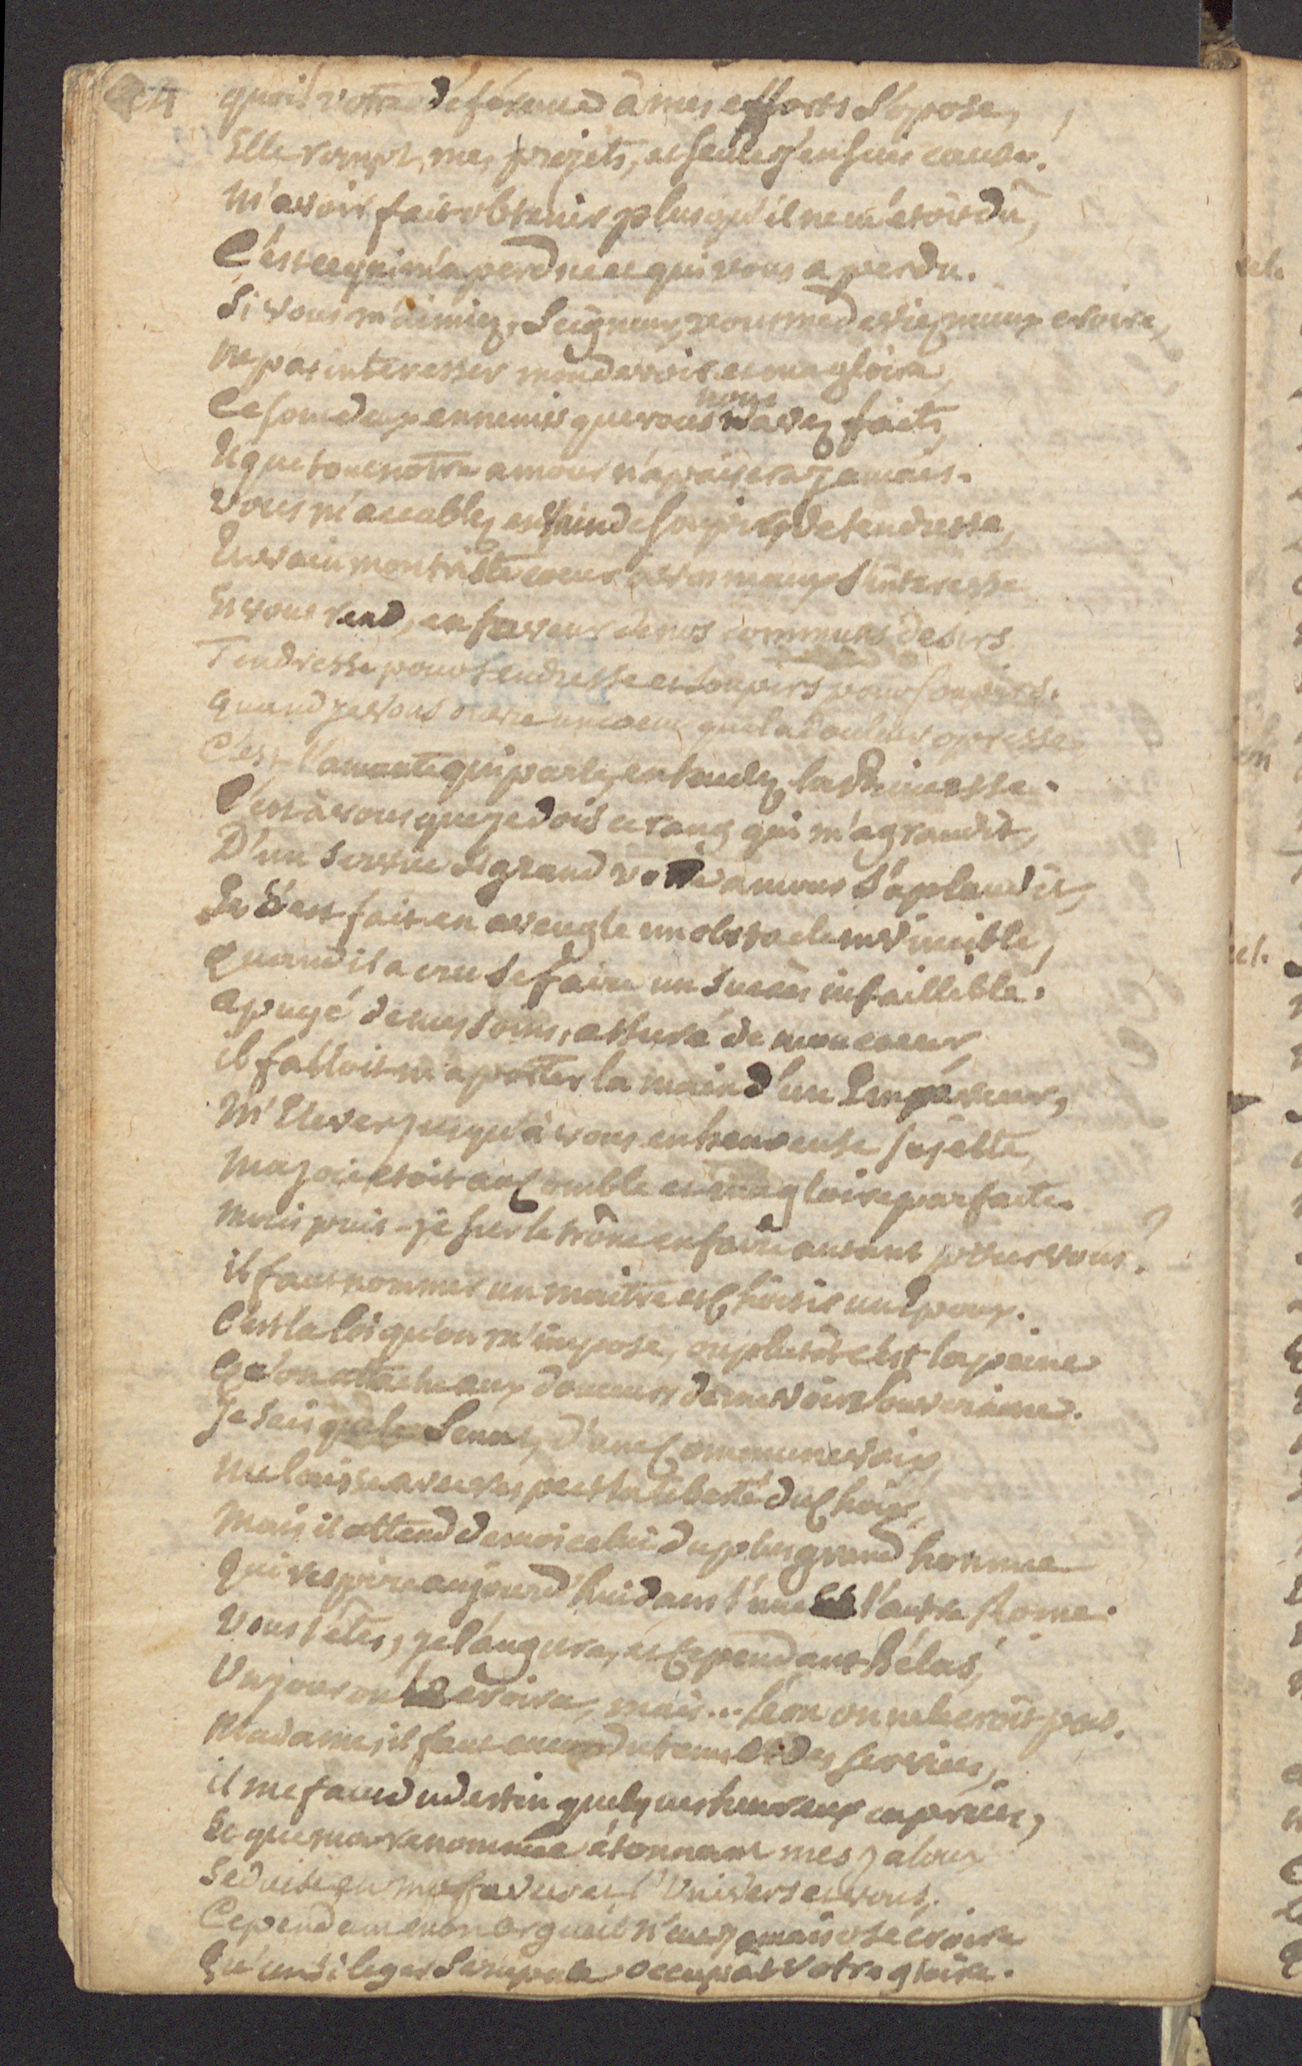 quoi! votre déférence à mes efforts s'opose,
Elle rompt mes projets, et seule j'en suis cause.
M'avoir fait obtenir plus qu'il ne m'étoit dû,
C'est ce qui m'a perdue et qui vous a perdu.
Si vous m'aimiez, Seigneur, vous me deviez mieux croire,
Ne pas interesser mon devoir et ma gloire,
Ce sont deux ennemis que vous nous avez faits,
Et que tout notre amour n'apaisera jamais.
Vous m'accablez en vain de soupirs, de tendresse,
En vain mon triste coeur à vos maux s'interesse
Et vous rend, en faveur de nos communs desirs
Tendresse pour tendresse et soupirs pour soupirs.
Quand je vous ouvre un coeur que la douleur opresse
C'est l'amante qui parle, entendez la Princesse.
C'est à vous que je dois ce rang qui m'agrandit,
D'un service si grand votre amour s'aplaudit,
Il s'est fait en aveugle un obstacle invincible,
Quand il a cru se faire un succès infaillible.
apuyé de mes soins, assuré de mon coeur,
il falloit m'aporter la main d'un Empereur,
M'Elever jusqu'à vous en heureuse sujette,
Ma joie etoit au Comble et ma gloire parfaite.
Mais puis-je sur le trône en faire autant pour vous?
il faut nommer un maitre et Choisir un Epoux.
C'est la loi qu'on m'impose, ou plutôt c'est la peine
Qu'on attache aux douceurs de me voir souveraine.
Je sais que le Senat, d'une Commune voix,
Me laisse avec respect la liberté du Choix,
Mais il attend de moi celui du plus grand homme
Qui respire aujourd'hui dans l'une et l'autre Rome.
Vous l'êtes, je l'augure, et Cependant hélas!
Un jour on le croira, mais... Leon on ne le croit pas.
Madame, il faut encor du tems et des services,
il me faut du destin quelques heureux caprices,
Et que ma renommée étonnant mes jaloux
Seduise en ma faveur et l'Univers et vous.
Cependant mon orgueil n'eut jamais osé croire
Qu'un si leger scrupule occupât votre gloire.